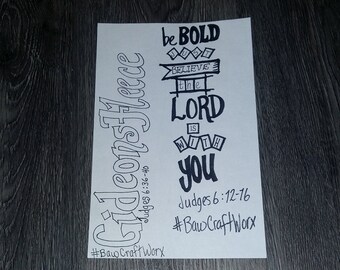 GideonsFleece
Judges 6:36-40
#BawCraftWorx
be BOLD
BELIEVE
THE
LORD
IS
WITH
YOU
Judges 6:12-16
#BawCraftWorx